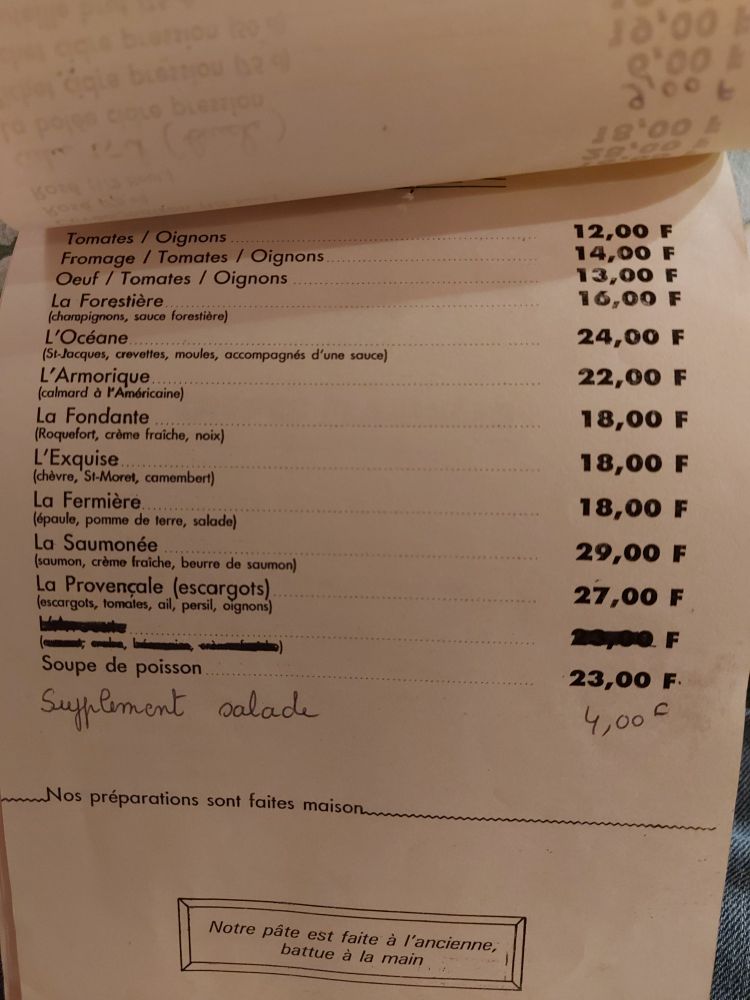 pression
pression
La bolée cidre pression
19,00
6,00 F
9,00 F
18,00 F
Tomates / Oignons 12,00 F
Fromage / Tomates / Oignons 14,00 F
Oeuf / Tomates / Oignons 13,00 F
La Forestière 16,00 F
(champignons, sauce forestière)
L'Océane 24,00 F
(St-Jacques, crevettes, moules, accompagnés d'une sauce)
L'Armorique 22,00 F
(calmard à l'Américaine)
La Fondante 18,00 F
(Roquefort, crème fraîche, noix)
L'Exquise 18,00 F
(chèvre, St-Moret, camembert)
La Fermière 18,00 F
(épaule, pomme de terre, salade)
La Saumonée 29,00 F
(saumon, crème fraîche, beurre de saumon)
La Provençale (escargots) 27,00 F
(escargots, tomates, ail, persil, oignons)
F
Soupe de poisson 23,00 F.
Supplement salade 4,00 F
Nos préparations sont faites maison
Notre pâte est faite à l'ancienne,
battue à la main